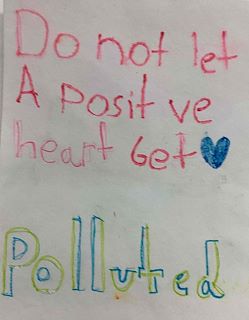 Do not let
A posit ve
heart Get
Polluted